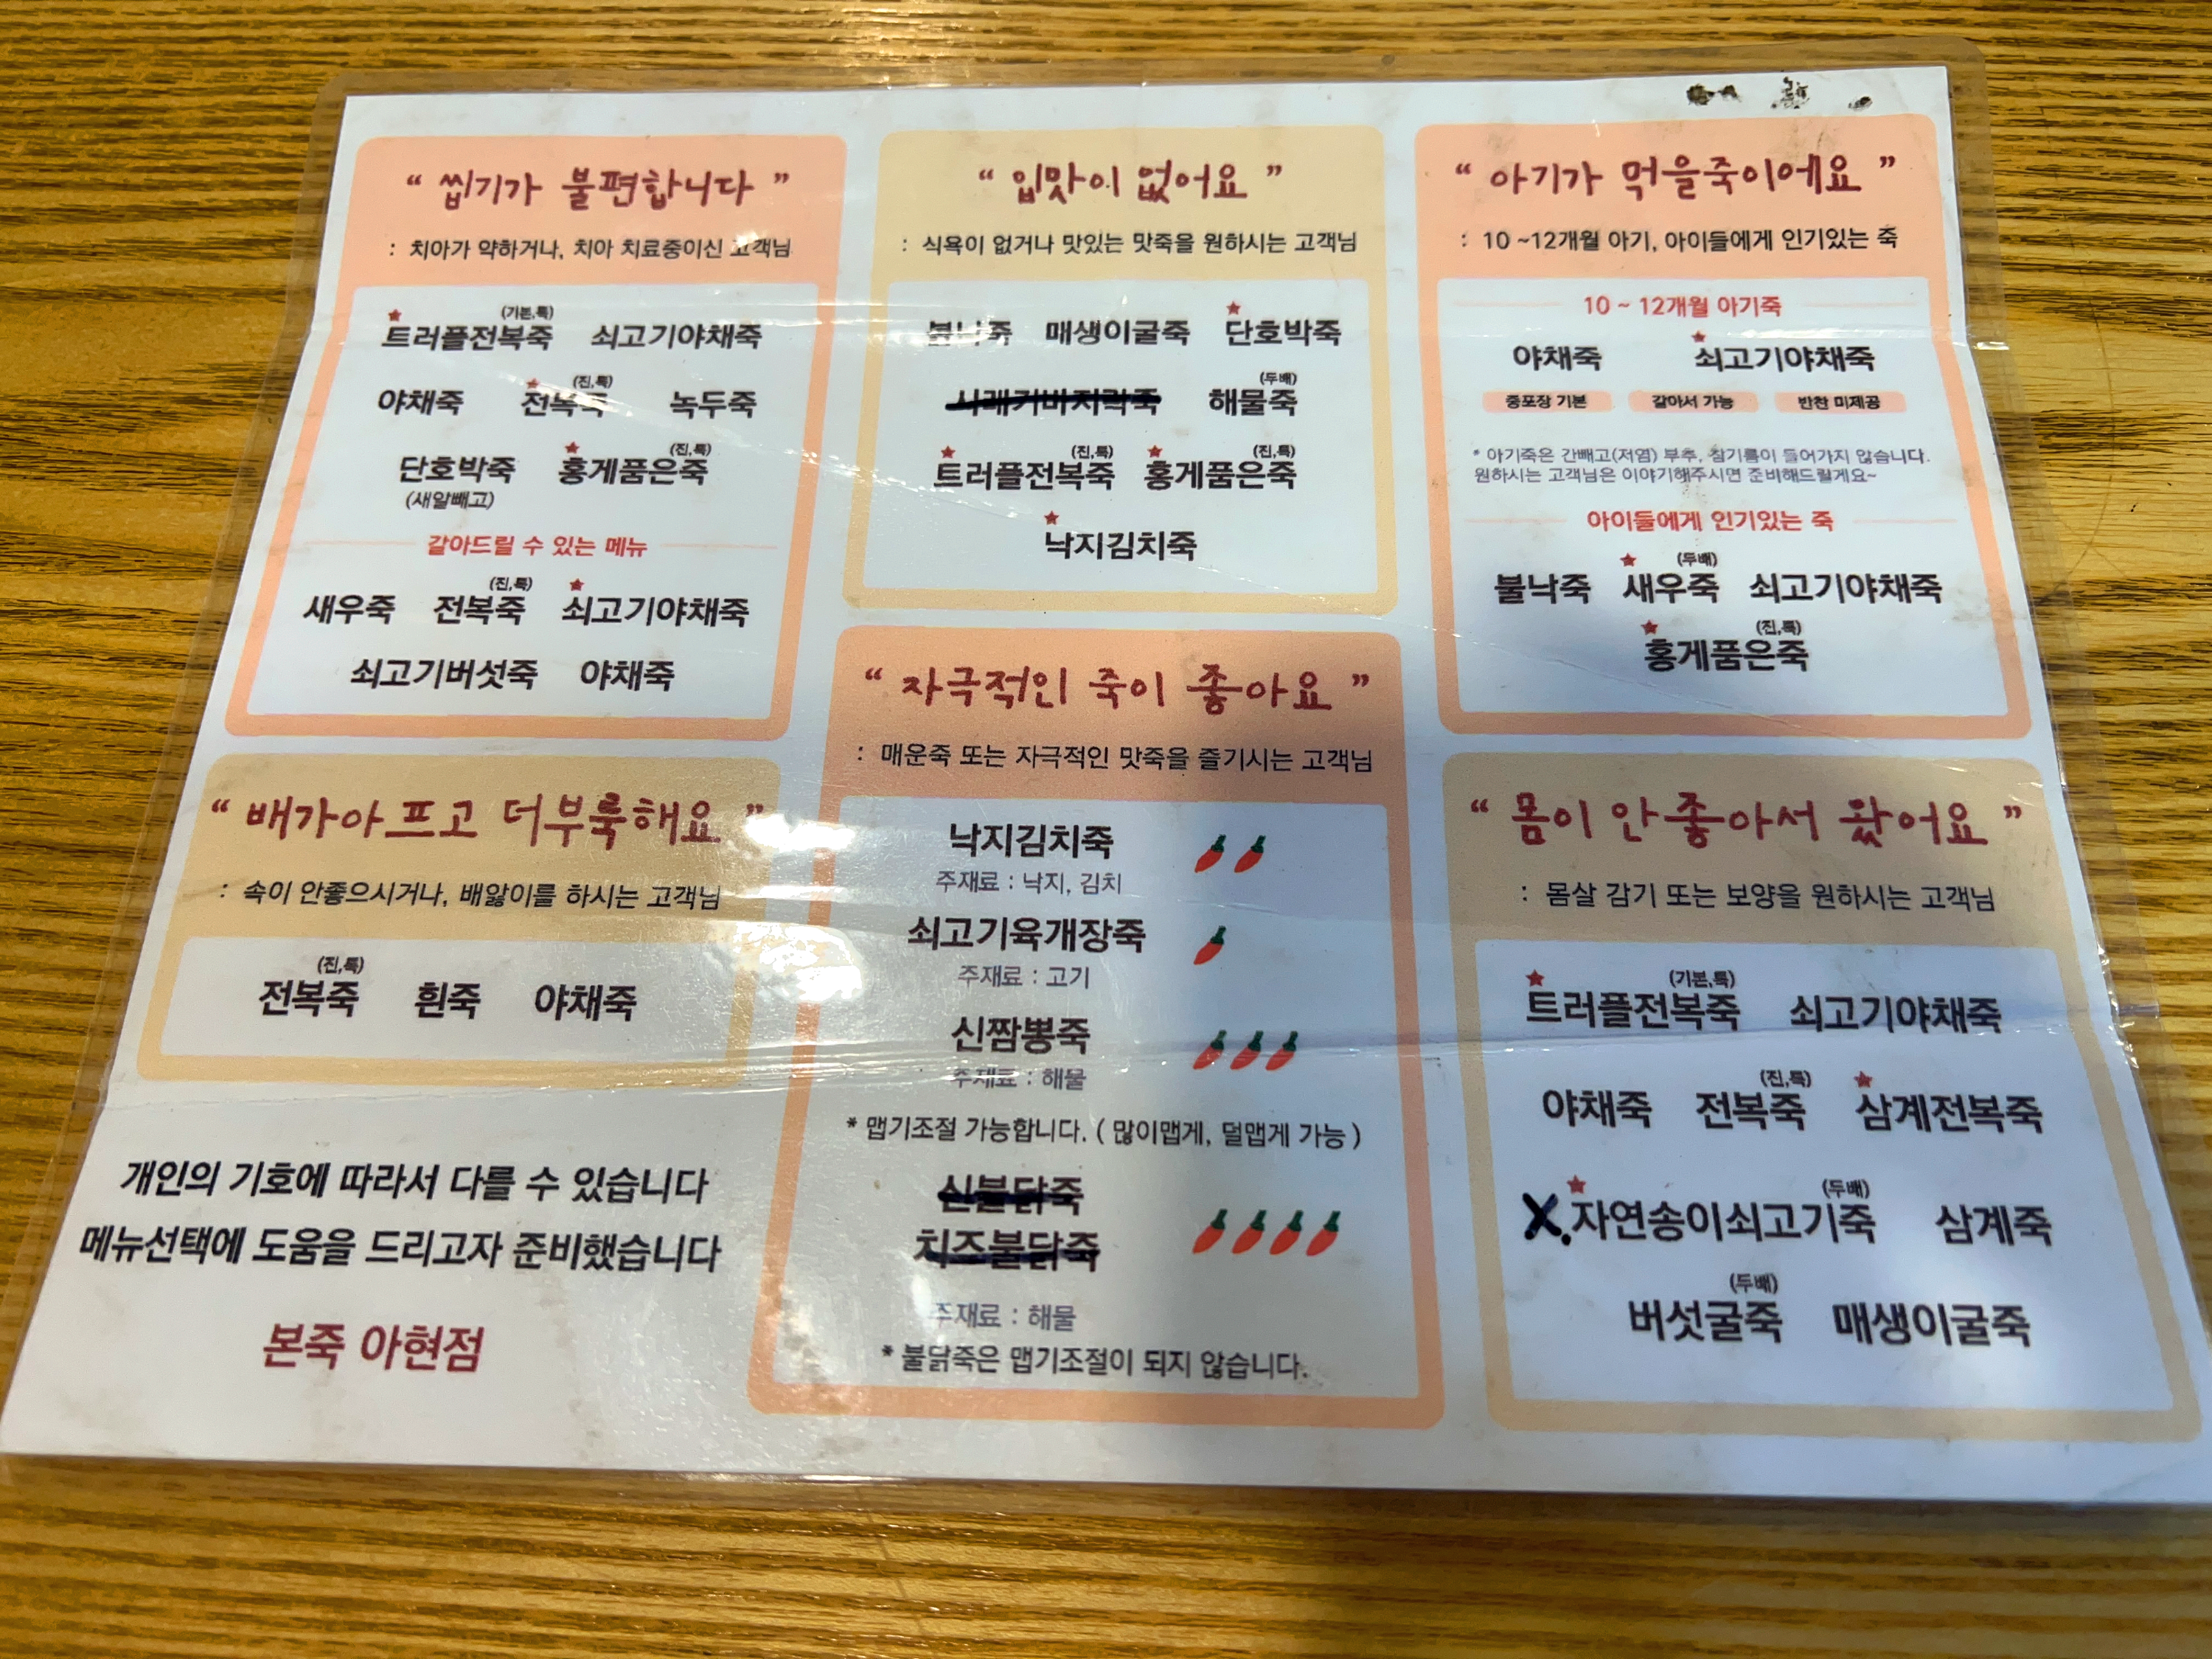 “ 씹기가 불편합니다 ”
: 치아가 약하거나, 치아 치료중이신 고객님
(기본,특)
트러플전복죽 쇠고기야채죽
(진,특)
야채죽 전복죽 녹두죽
(진,특)
단호박죽 홍게품은죽
(새알빼고)
갈아드릴 수 있는 메뉴
(진,특)
새우죽 전복죽 쇠고기야채죽
쇠고기버섯죽 야채죽
“ 입맛이 없어요 ”
: 식욕이 없거나 맛있는 맛죽을 원하시는 고객님
불낙죽 매생이굴죽 단호박죽
(두배)
해물죽
(진,특) (진,특)
트러플전복죽 홍게품은죽
낙지김치죽
“ 아기가 먹을죽이에요 ”
: 10 ~12개월 아기, 아이들에게 인기있는 죽
10 ~ 12개월 아기죽
야채죽 쇠고기야채죽
중포장 기본 갈아서 가능 반찬 미제공
* 아기죽은 간빼고(저염) 부추, 참기름이 들어가지 않습니다.
원하시는 고객님은 이야기해주시면 준비해드릴게요~
아이들에게 인기있는 죽
(두배)
불낙죽 새우죽 쇠고기야채죽
(진,특)
홍게품은죽
“ 배가아프고 더부룩해요 ”
: 속이 안좋으시거나, 배앓이를 하시는 고객님
(진,특)
전복죽 흰죽 야채죽
“ 자극적인 죽이 좋아요 ”
: 매운죽 또는 자극적인 맛죽을 즐기시는 고객님
낙지김치죽
주재료 : 낙지, 김치
쇠고기육개장죽
주재료 : 고기
신짬뽕죽
주재료 : 해물
* 맵기조절 가능합니다. ( 많이맵게, 덜맵게 가능 )
신불닭죽
치즈불닭죽
주재료 : 해물
* 불닭죽은 맵기조절이 되지 않습니다.
“ 몸이 안좋아서 왔어요 ”
: 몸살 감기 또는 보양을 원하시는 고객님
(기본,특)
트러플전복죽 쇠고기야채죽
(진,특)
야채죽 전복죽 삼계전복죽
(두배)
X. 자연송이쇠고기죽 삼계죽
(두배)
버섯굴죽 매생이굴죽
개인의 기호에 따라서 다를 수 있습니다
메뉴선택에 도움을 드리고자 준비했습니다
본죽 아현점